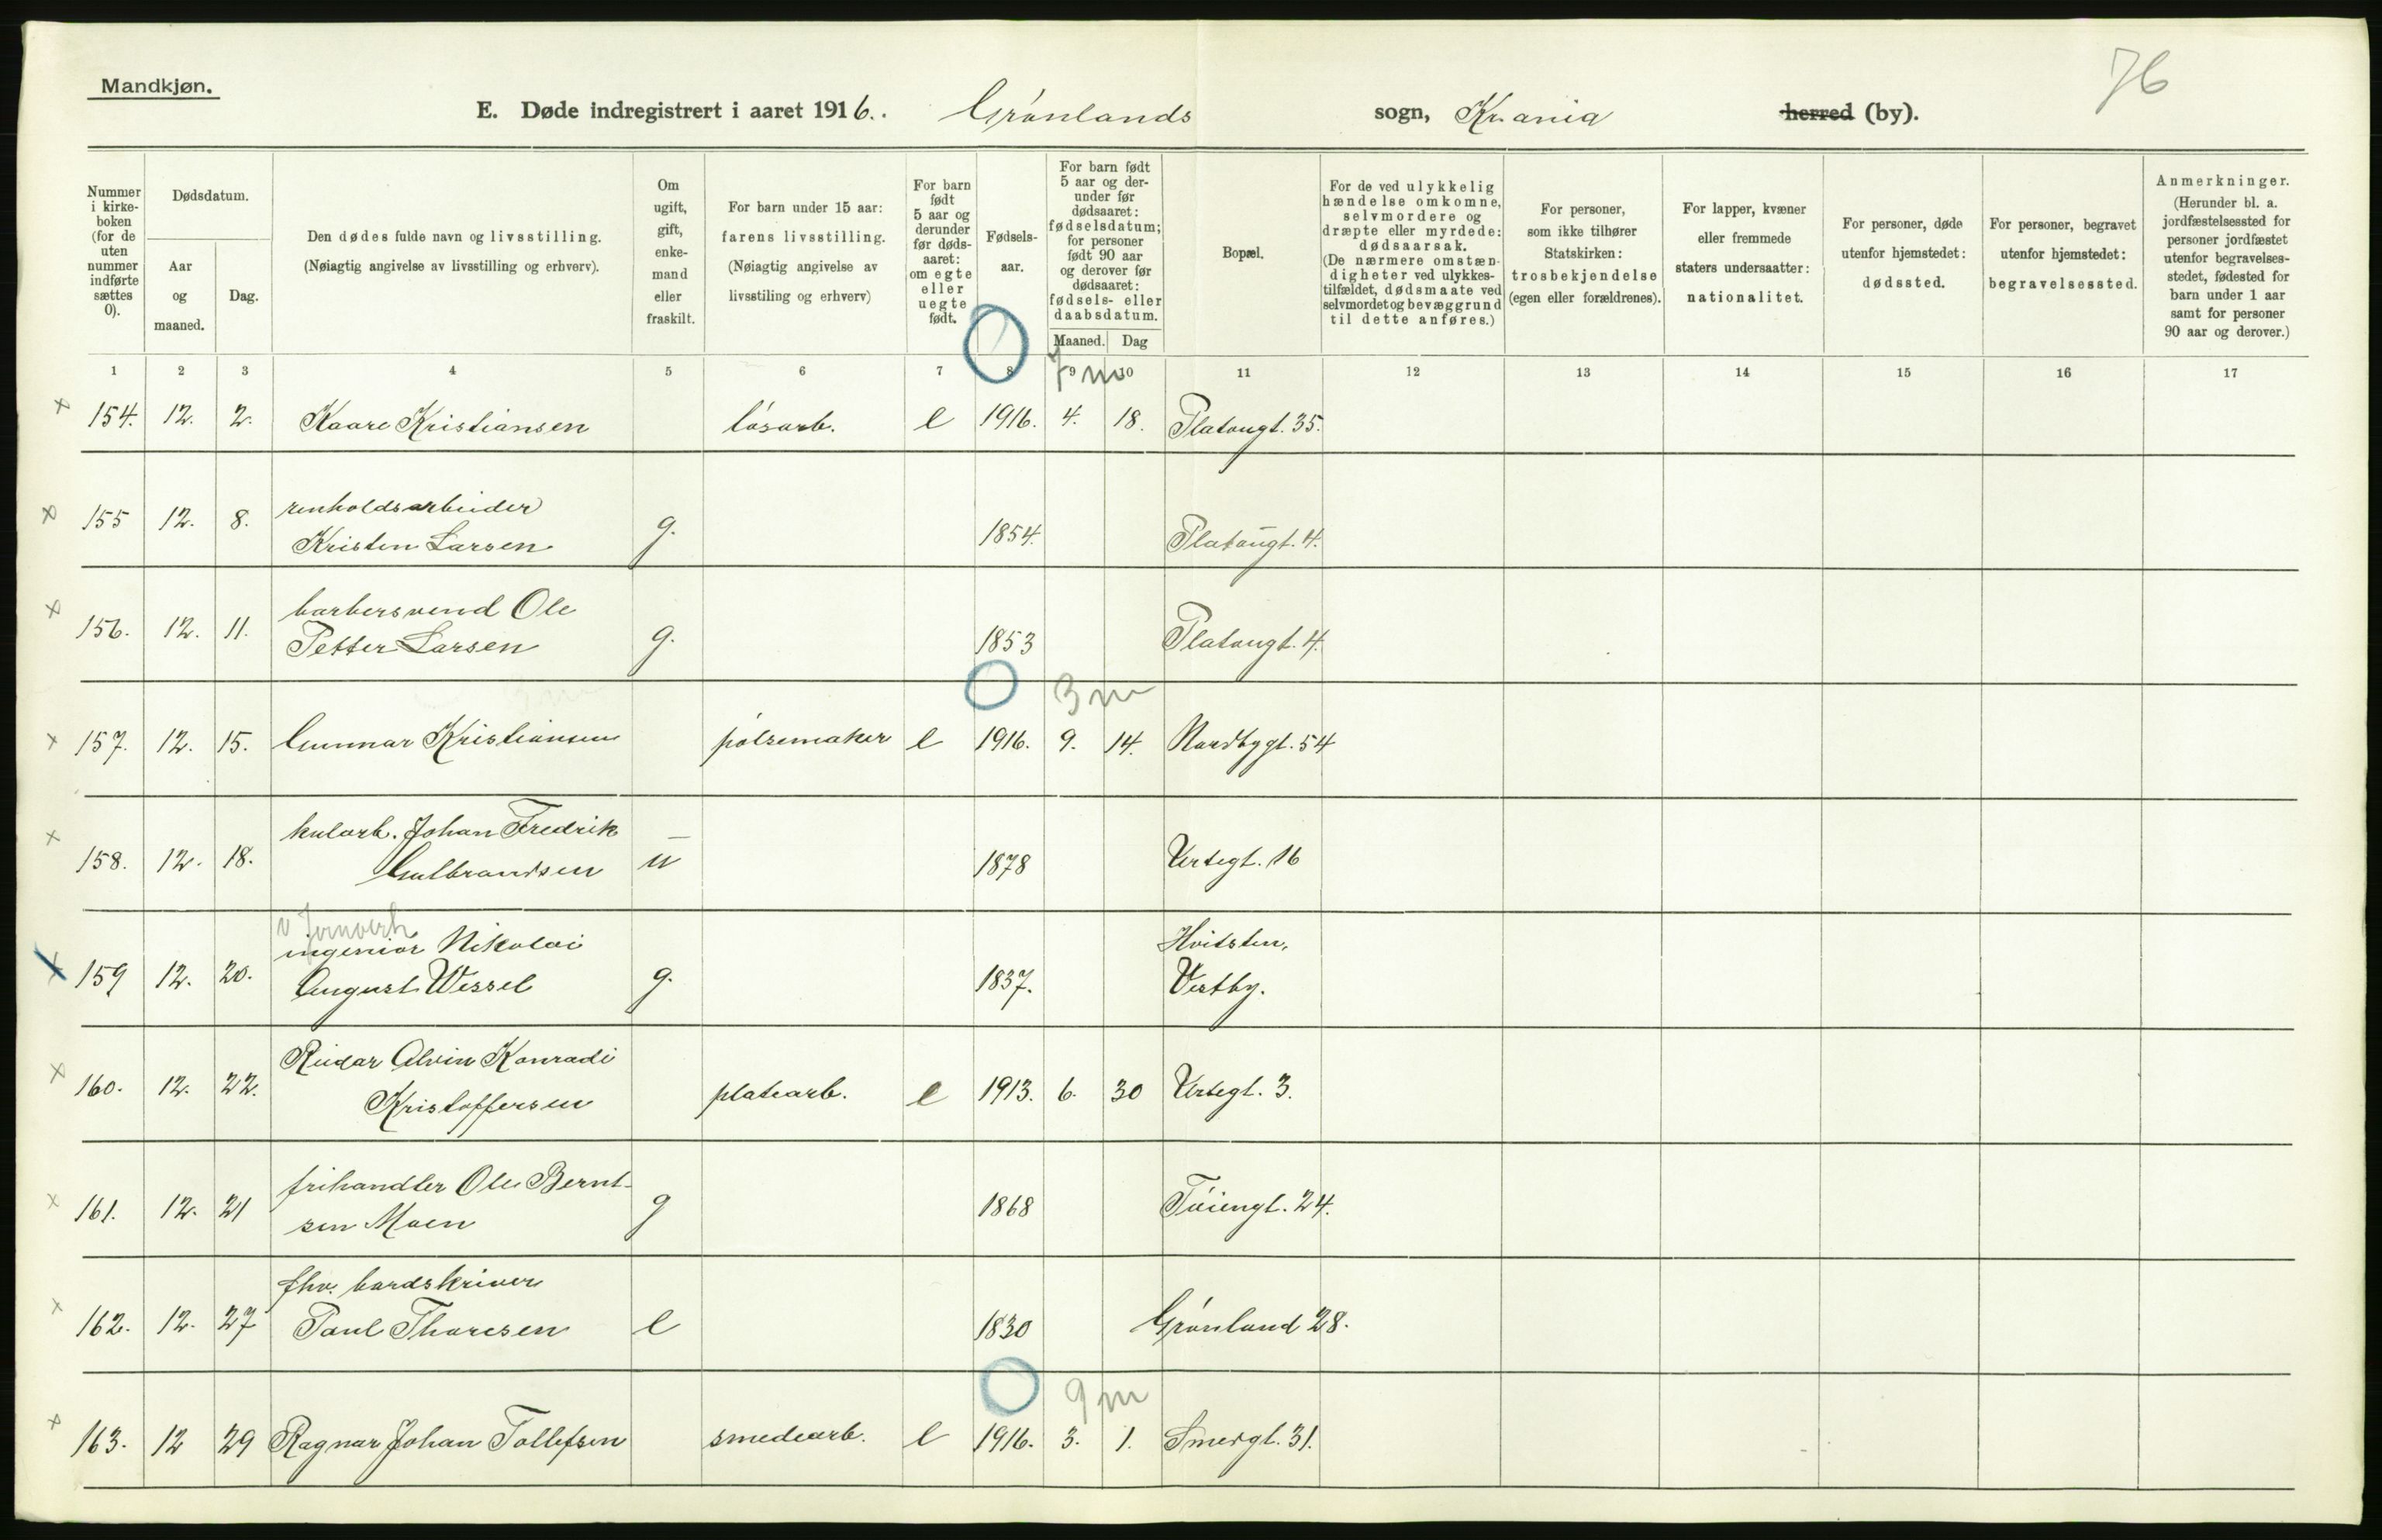 76
Mandkjøn.
E. Døde indregistrert i aaret 1916. Grønlands sogn, Kr.ania herred (by).
Nummer i kirke-boken (for de uten nummer indførte sættes 0).
Dødsdatum.
Aar og maaned.
Dag.
Den dødes fulde navn og livsstilling.
(Nøiagtig angivelse av livsstilling og erhverv).
Om ugift, gift, enke-mand eller fraskilt.
For barn under 15 aar: farens livsstilling.
(Nøiagtig angivelse av livsstiling og erhverv)
For barn født 5 aar og derunder før døds-aaret: om egte eller uegte født.
Fødsels-aar.
For barn født 5 aar og der-under før dødsaaret: fødselsdatum; for personer født 90 aar og derover før dødsaaret: fødsels- eller daabsdatum.
Maaned. Dag
Bopæl.
For de ved ulykkelig hændelse omkomne, selvmordere og dræpte eller myrdede: dødsaarsak.
(De nærmere omstæn-digheter ved ulykkes-tilfældet, dødsmaate ved selvmordet og bevæggrund til dette anføres.)
For personer, som ikke tilhører Statskirken: trosbekjendelse (egen eller forældrenes).
For lapper, kvæner eller fremmede staters undersaatter: nationalitet.
For personer, døde utenfor hjemstedet: dødssted.
For personer, begravet utenfor hjemstedet: begravelsessted.
Anmerkninger.
(Herunder bl. a. jordfæstelsessted for personer jordfæstet utenfor begravelses-stedet, fødested for barn under 1 aar samt for personer 90 aar og derover.)
1 2 3 4 5 6 7 8 9 10 11 12 13 14 15 16 17
7 m
x 154. 12. 2. Kaare Kristiansen løsarb. e 1916. 4. 18. Platougt. 35.
x 155 12. 8. renholdsarbeider
Kristen Larsen g. 1854. Platougt. 4.
x 156. 12. 11. barbersvend Ole
Petter Larsen g. 1853 Platougt. 4.
3 m
x 157. 12. 15. Gunnar Kristiansen pølsemaker e 1916. 9. 14. Nordbygt. 54
x 158. 12. 18. kularb. Johan Fredrik
Gulbrandsen u 1878 Urtegt. 16
v jernverk
x 159 12. 20. ingeniør Nikolai
August Wessel g. 1837. Hvitsten,
Vestby.
x 160. 12. 22. Reidar Alvin Konradi
Kristoffersen platearb. e 1913. 6. 30 Urtegt. 3.
x 161. 12. 21 frihandler Ole Bernt-
sen Moen g 1868 Tøiengt. 24.
x 162. 12. 27 fhv. bordskriver
Paul Thoresen e 1830 Grønland 28.
9 m
x 163. 12 29 Ragnar Johan Tollefsen smedearb. e 1916. 3. 1. Smedgt. 31.